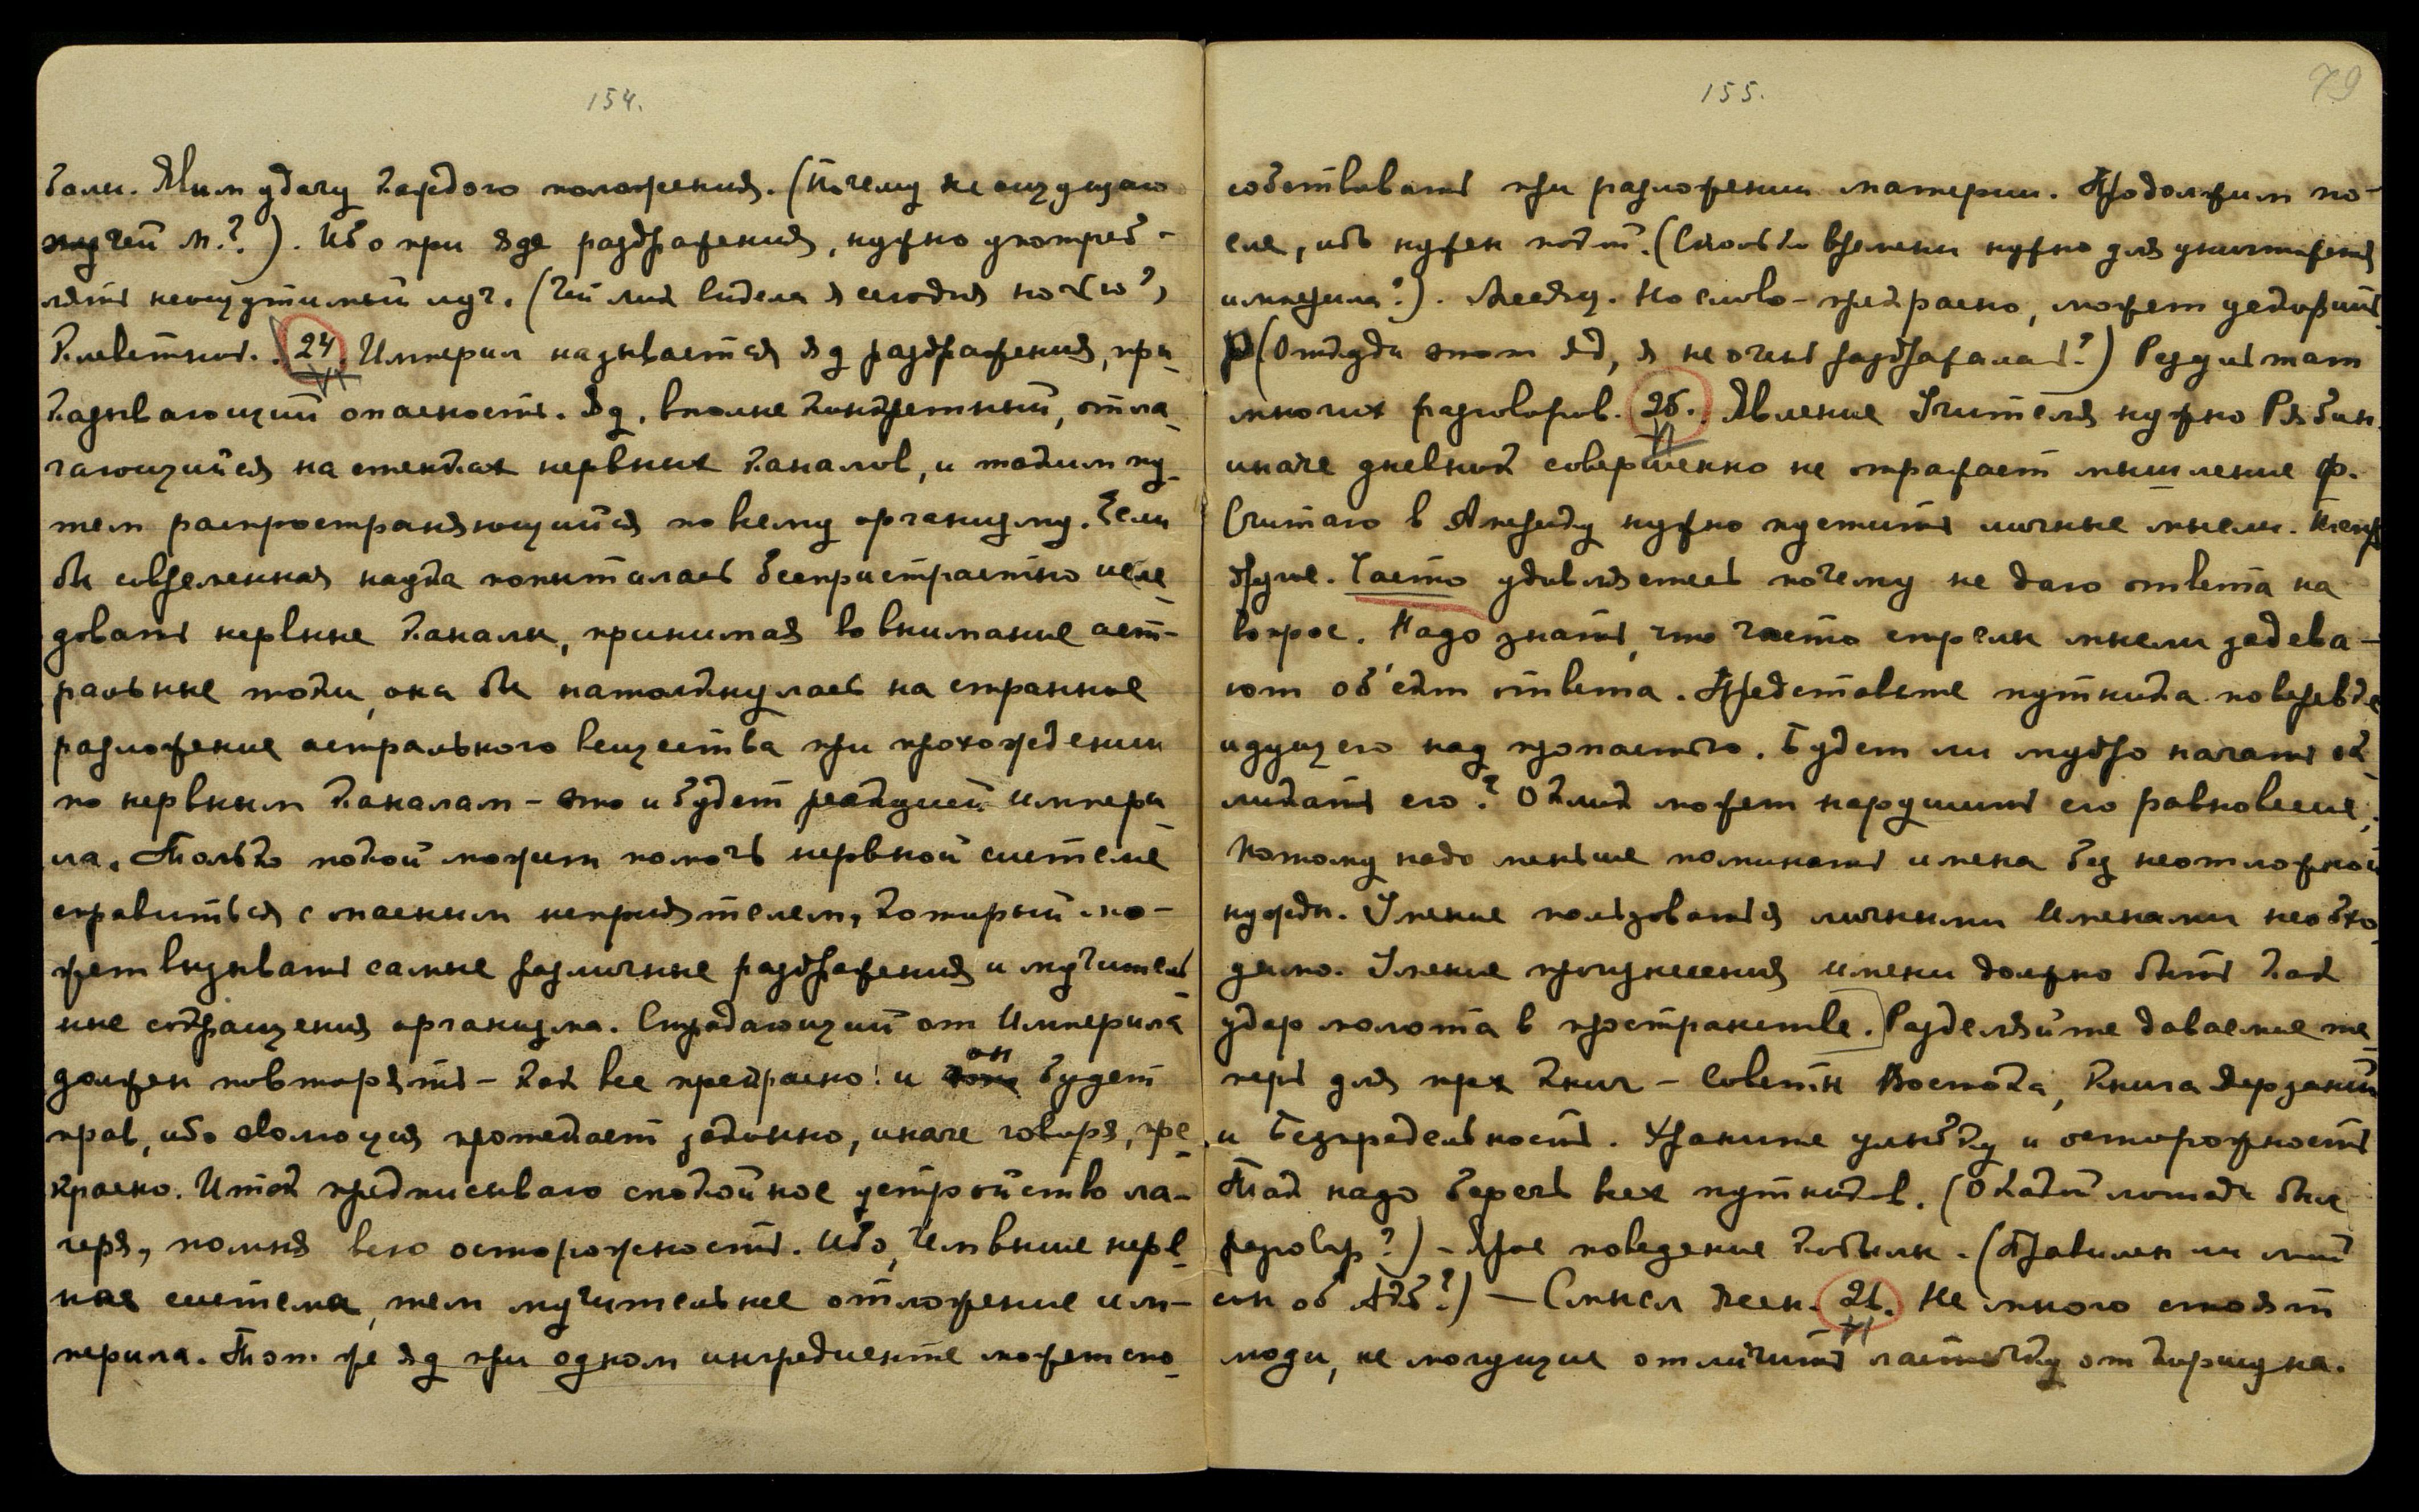 154.
бали. Явим удачу каждого положения. (Почему не ощущаю
лучей М.?). Ибо при яде раздражения, нужно употреб-
лять неощутимый луч. (Чей лик видела я сегодня ночью?)
Клеветник. 24. Империл называется яд раздражения, при-
VI
казывающий опасность. Яд, вполне конкретный, отла-
гающийся на стенках нервных каналов, и таким пу-
тем распространяющийся по всему организму. Если
бы современная наука попыталась беспристрастно иссле-
довать нервные каналы, принимая во внимание аст-
ральные токи, она бы натолкнулась на странное
разложение астрального вещества при прохождении
по нервным каналам - это и будет реакцией импери-
ла. Только покой может помочь нервной системе
справиться с опасным неприятелем, который мо-
жет вызывать самые различные раздражения и мучитель-
ные сокращения организма. Страдающий от Империла
должен повторять - как все прекрасно! и он будет
прав, ибо эволюция протекает законно, иначе говоря, пре-
красно. Итак предписываю спокойное устройство ла-
геря, помня всю осторожность. Ибо, чем выше нерв-
ная система, тем мучительнее отложение им-
перила. Тот же яд при одном ингредиенте может спо-
155.
79
собствовать при разложении материи. Продолжим по-
сле, ибо нужен покой. (Сколько времени нужно для уничтожения
империла?). Месяц. Но слово - прекрасно, может ускорить.
(Откуда этот яд, я не очень раздражалась?) Результат
многих разговоров. 25. Явление Учителя нужно Рябин.
VI
иначе дневник совершенно не отражает мышление Ф.
Считаю в Америку нужно пустить личные мысли.
другие. Часто удивляетесь почему не даю ответа на
вопрос. Надо знать, что часто стрелы мысли задева-
ют об'ект ответа. Представьте путника по веревке
идущего над пропастью. Будет ли мудро начать ок-
ликать его? Оклик может нарушить его равновесие,
потому надо меньше поминать имена без неотложной
нужды. Умение пользоваться личными Именами необхо-
димо. Умение произнесения имени должно быть как
удар молота в пространстве. Разделяйте даваемые те-
перь для трех книг - Советы Востока, Книга Дерзаний
и Безпредельность. Храните улыбку и осторожность
Так надо беречь всех путников. (О какой лошади был
разговор?) - Злое поведение кобылы. (Правилен ли мой
сон об Адб?) — Смысл ясен. 26. Не много стоят
VI
люди, не могущие отличить ласточку от коршуна.